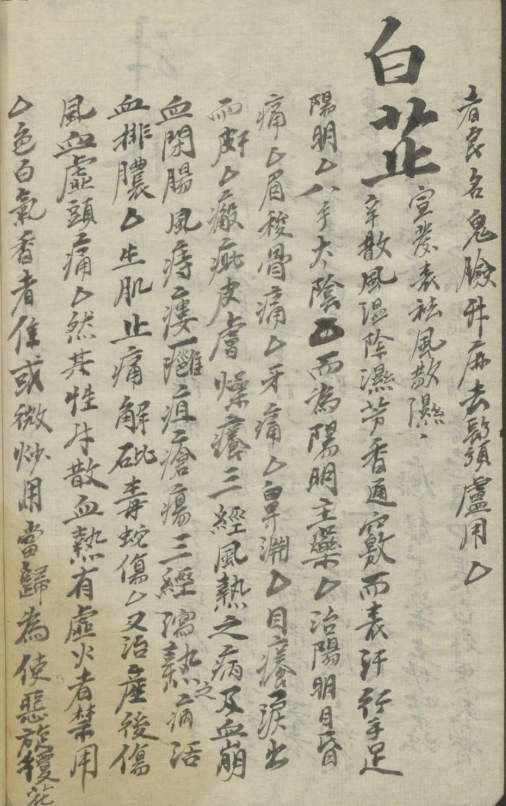 者良名鬼臉升麻去鬚蘆用△
白芷
宣發表祛風散濕
辛散風溫除濕芳香通竅而表汗行手足
陽明△入手太陰而為陽明主藥△治陽明目昏
痛△眉稜骨痛△牙痛△鼻淵△目癢淚出
面皯△瘢疵皮膚燥癢三經風熱之病及血崩
血閉腸風痔瘻癰疽瘡瘍三經濕熱之病活
血排膿△生肌止痛解砒毒蛇傷△又治產後傷
風血虛頭痛△然其性升散血熱有虛火者禁用
△色白氣香者佳或微炒用當歸為使惡旋覆花